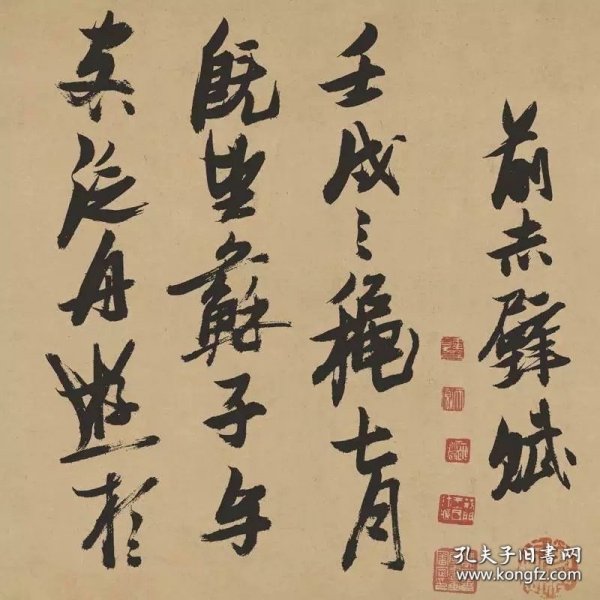 前赤壁賦
壬戌之穐七月
既望蘇子与
客泛舟遊於
孔夫子旧书网
www.kongfz.com